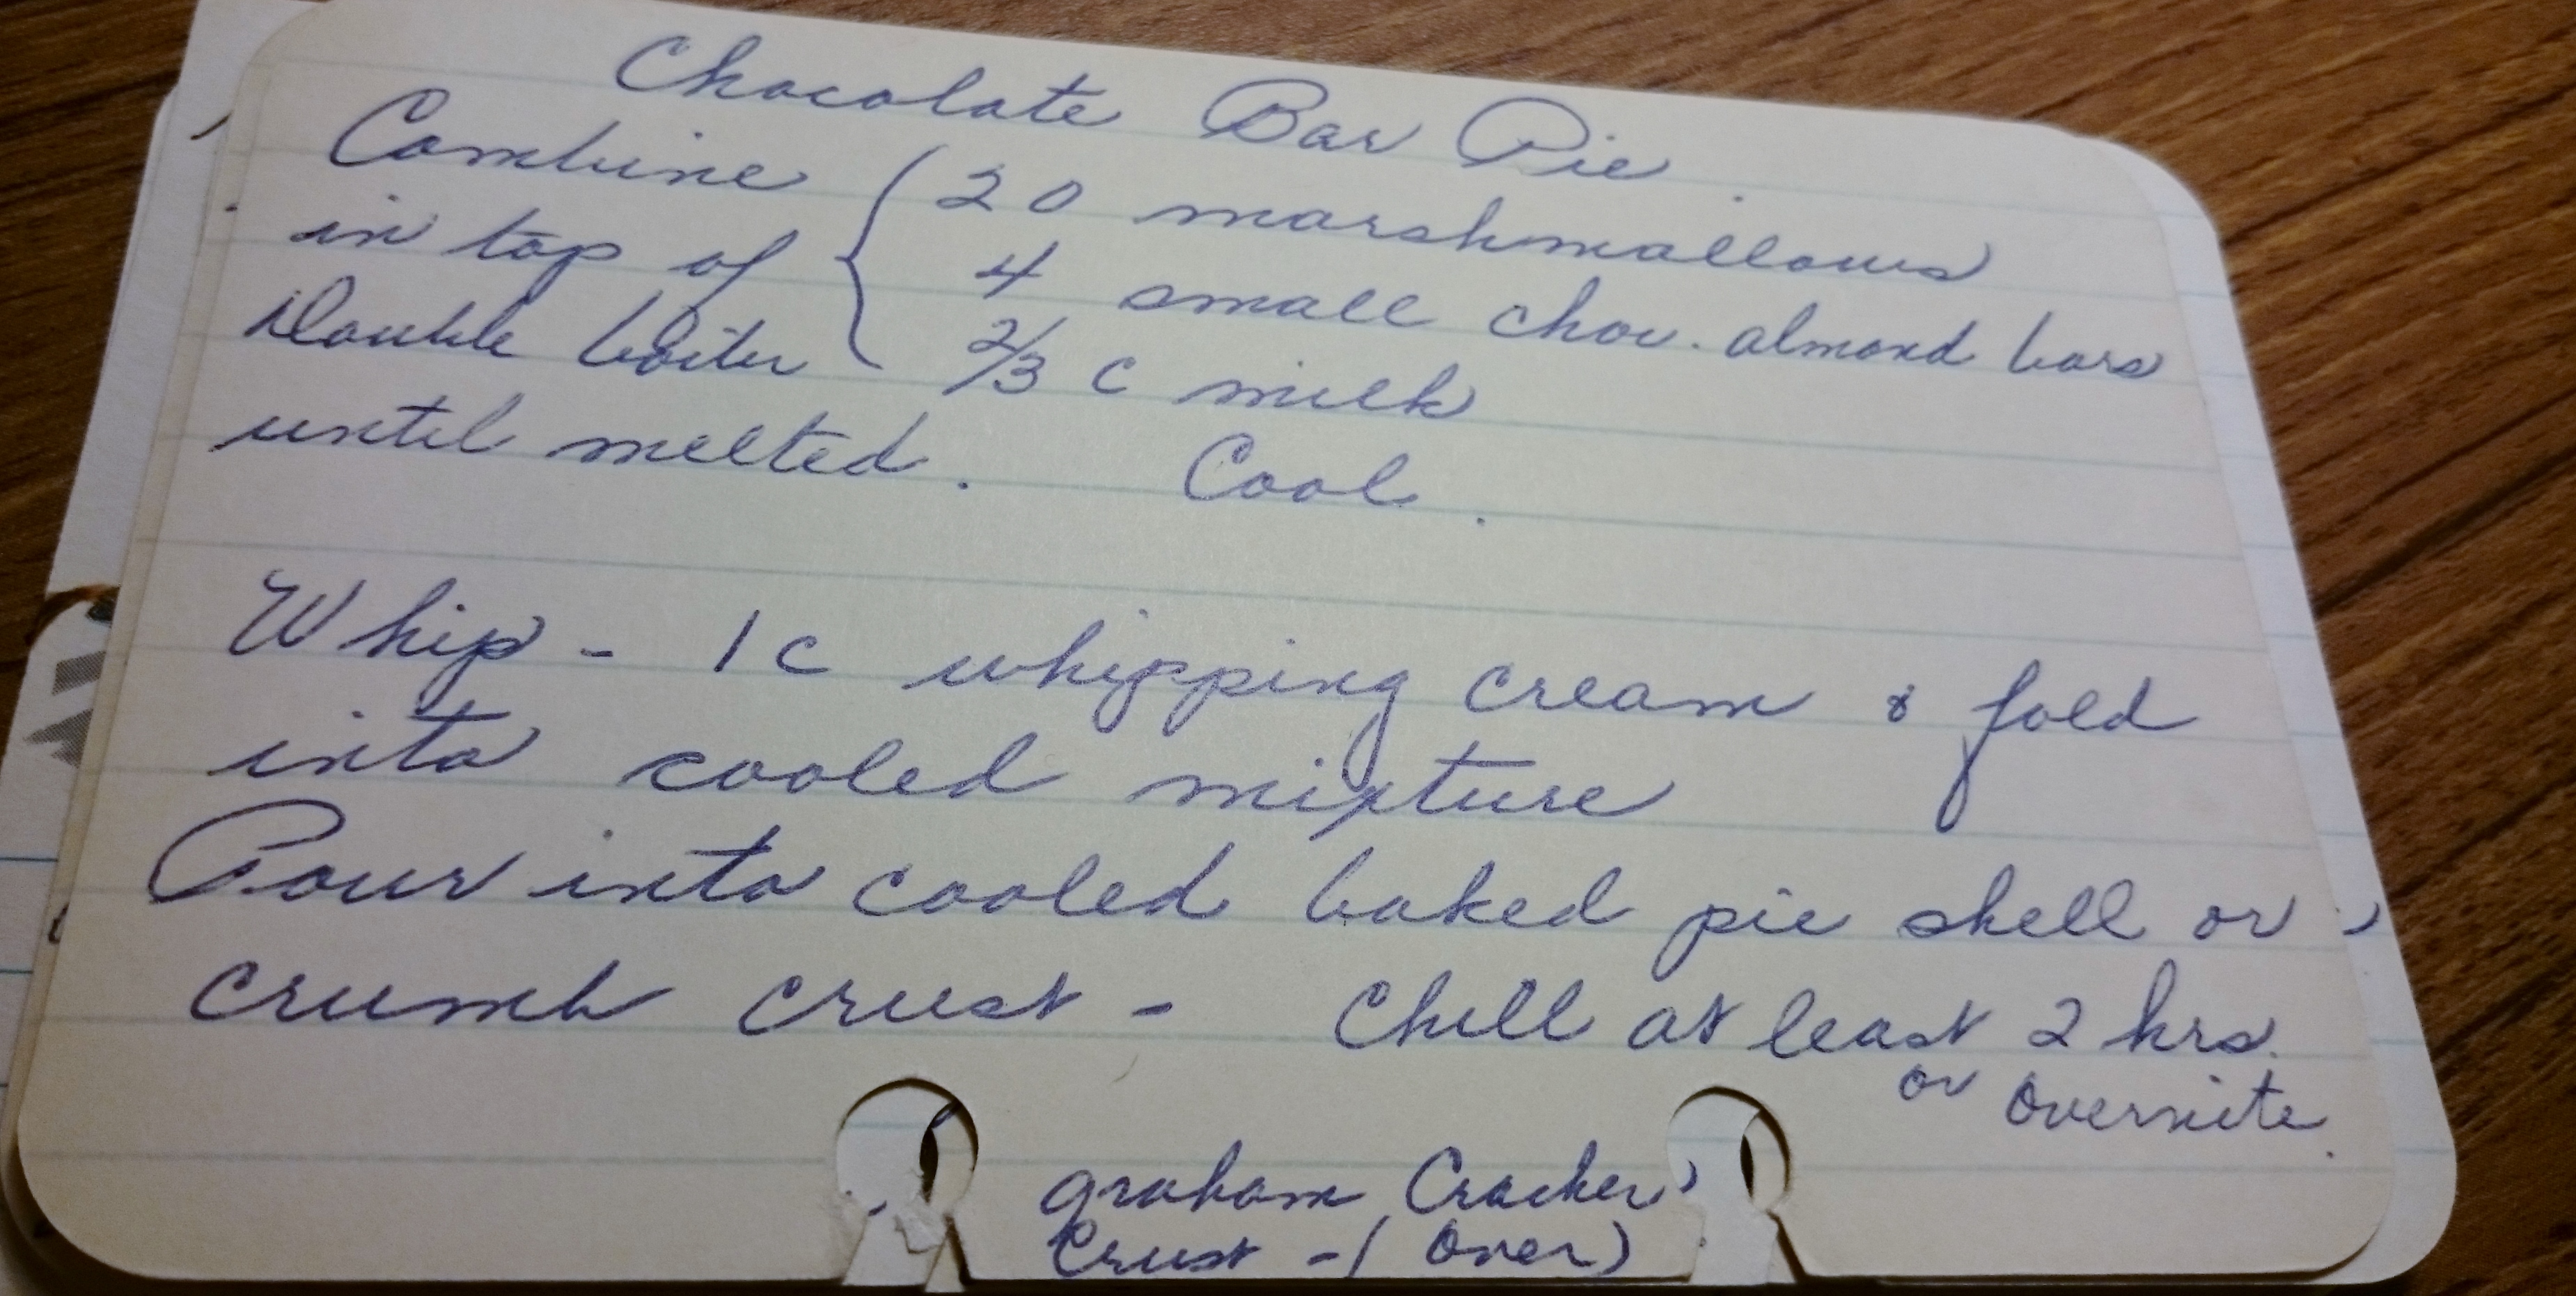 Chocolate Bar Pie
Combine { 20 marshmallows
in top of 4 small choc. almond bars
Double boiler 2/3 c milk
until melted. Cool.
Whip - 1 c whipping cream & fold
into cooled mixture
Pour into cooled baked pie shell or
crumb crust - Chill at least 2 hrs.
or overnite.
graham Cracker
Crust - (over)